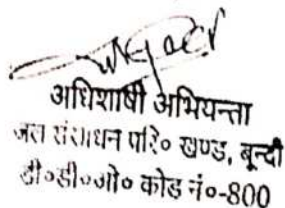 अधिशाषी अभियन्ता
जल संसाधन परि० खण्ड, बून्दी
डी०डी०ओ० कोड नं०-800